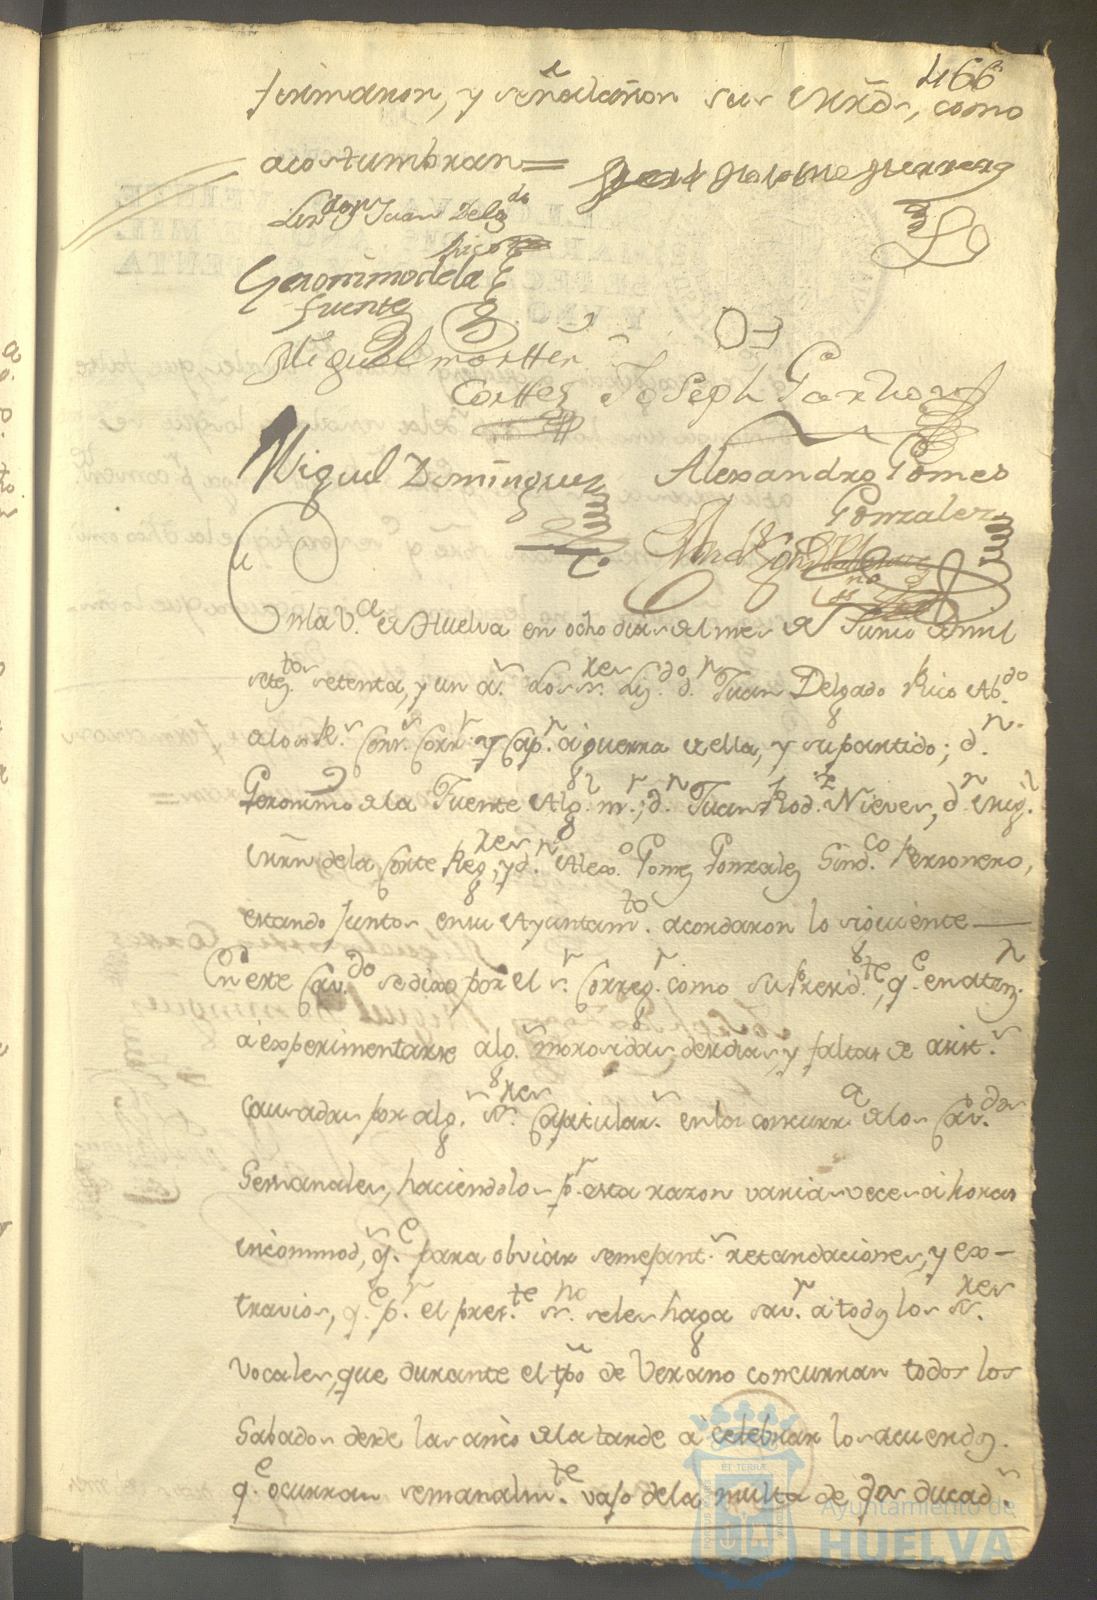 466
firmaron, y señalaron sus mrds, como
acostumbran=
Lizdo. dn. Juan Delgdo.
Rico
Geronimo de la
fuente
Miguel mortter
Corttes Joseph Garzon
Miguel Dominguez Alexandro Gomes
Gonzalez
En la V.a de Huelva en ocho dias del mes de Junio de mil
setez.tos setenta, y un a.s los s.res Liz.do d.n Juan Delgado Rico Ab.do
a los R.s Cons.s Corr.r y Cap.n a guerra de ella, y su partido; d.n
Geronimo de la Fuente Alg.l m.r; d.n Juan Rod.z Nieves, d.n Mig.l
Mrñ de la Corte Reg.res, y d.n Alex.o Gomz Gonzalez Sind.co Personero,
estando juntos en su Ayuntam.to acordaron lo siguiente
En este Cav.do se dixo por el s.r Correg.r como su Presid.te, q.e en atn.n
a experimentarse alg.s morosidas, desdias, y faltas de asist.s
causadas por alg.s s.res Capitular.s en las concurr.a a los Cav.dos
Semanales, haciendolos p.r esta razon varias veces a horas
incommod.s, q.e para obviar semejant.s retardaciones, y ex-
travios, q.e p.r el pres.te ss.no se les haga sav.r a todos los s.res
vocales, que durante el tpo de Verano concurran todos los
Sabados desde las cinco de la tarde a celebrar los acuerdos
q.e ocurran semanalm.te vajo de la multa de dos ducad.s
Ayuntamiento de
HUELVA